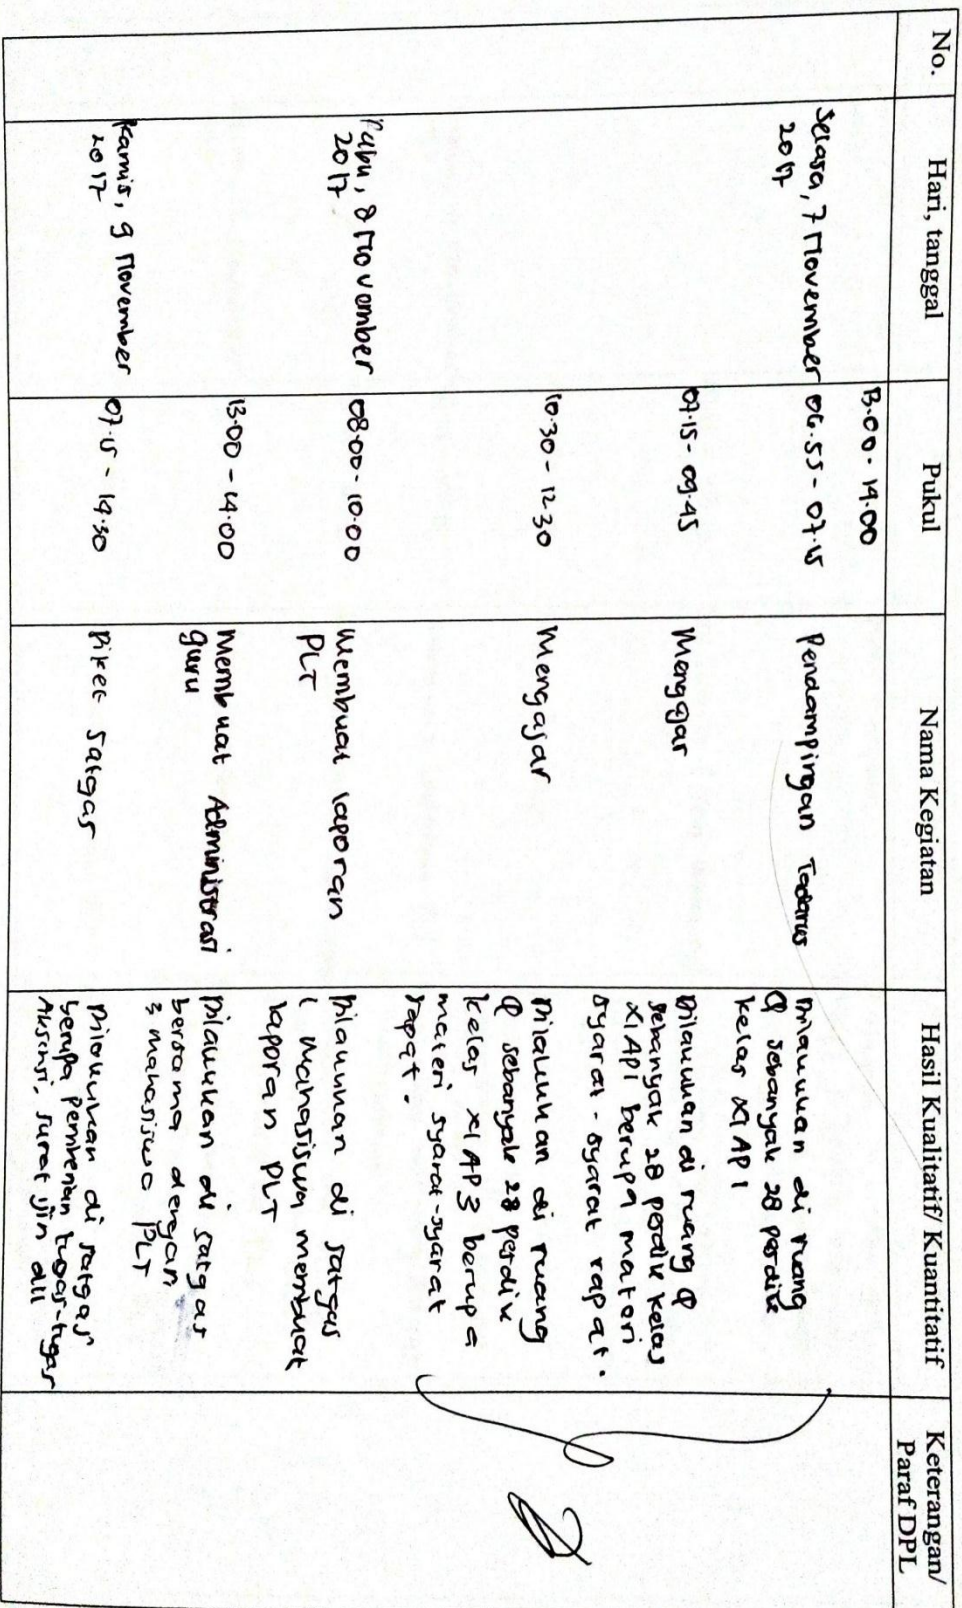 No.
Hari, tanggal
Pukul
Nama Kegiatan
Hasil Kualitatif/ Kuantitatif
Keterangan/
Paraf DPL
13.00 - 14.00
Selasa, 7 November
2017
06.55 - 07.15
Pendampingan Tadarus
Dilakukan di ruang
Q sebanyak 28 perdik
kelas XI AP 1
07.15 - 09.45
Mengajar
Dilakukan di ruang Q
sebanyak 28 perdik kelas
XI AP1 berupa materi
syarat - syarat rapat.
10.30 - 12.30
Mengajar
Dilakukan di ruang
Q sebanyak 28 perdik
kelas XI AP3 berupa
materi syarat-syarat
rapat.
Rabu, 8 November
2017
08.00 - 10.00
Membuat laporan
PLT
Dilakukan di satgas
1 mahasiswa membuat
laporan PLT
13.00 - 14.00
Membuat Administrasi
guru
Dilakukan di satgas
bersama dengan
3 mahasiswa PLT
Kamis, 9 November
2017
07.15 - 14.30
Piket Satgas
Dilakukan di satgas
berupa pemberian tugas-tugas
Absensi, surat ijin dll